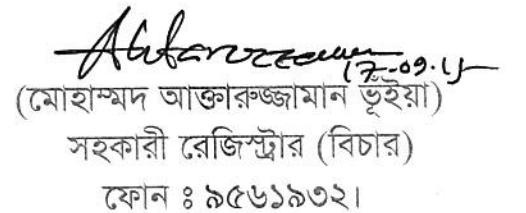 17-09-15
(মোহাম্মদ আক্তারুজ্জামান ভূঁইয়া)
সহকারী রেজিস্ট্রার (বিচার)
ফোন ঃ ৯৫৬১৯৩২।